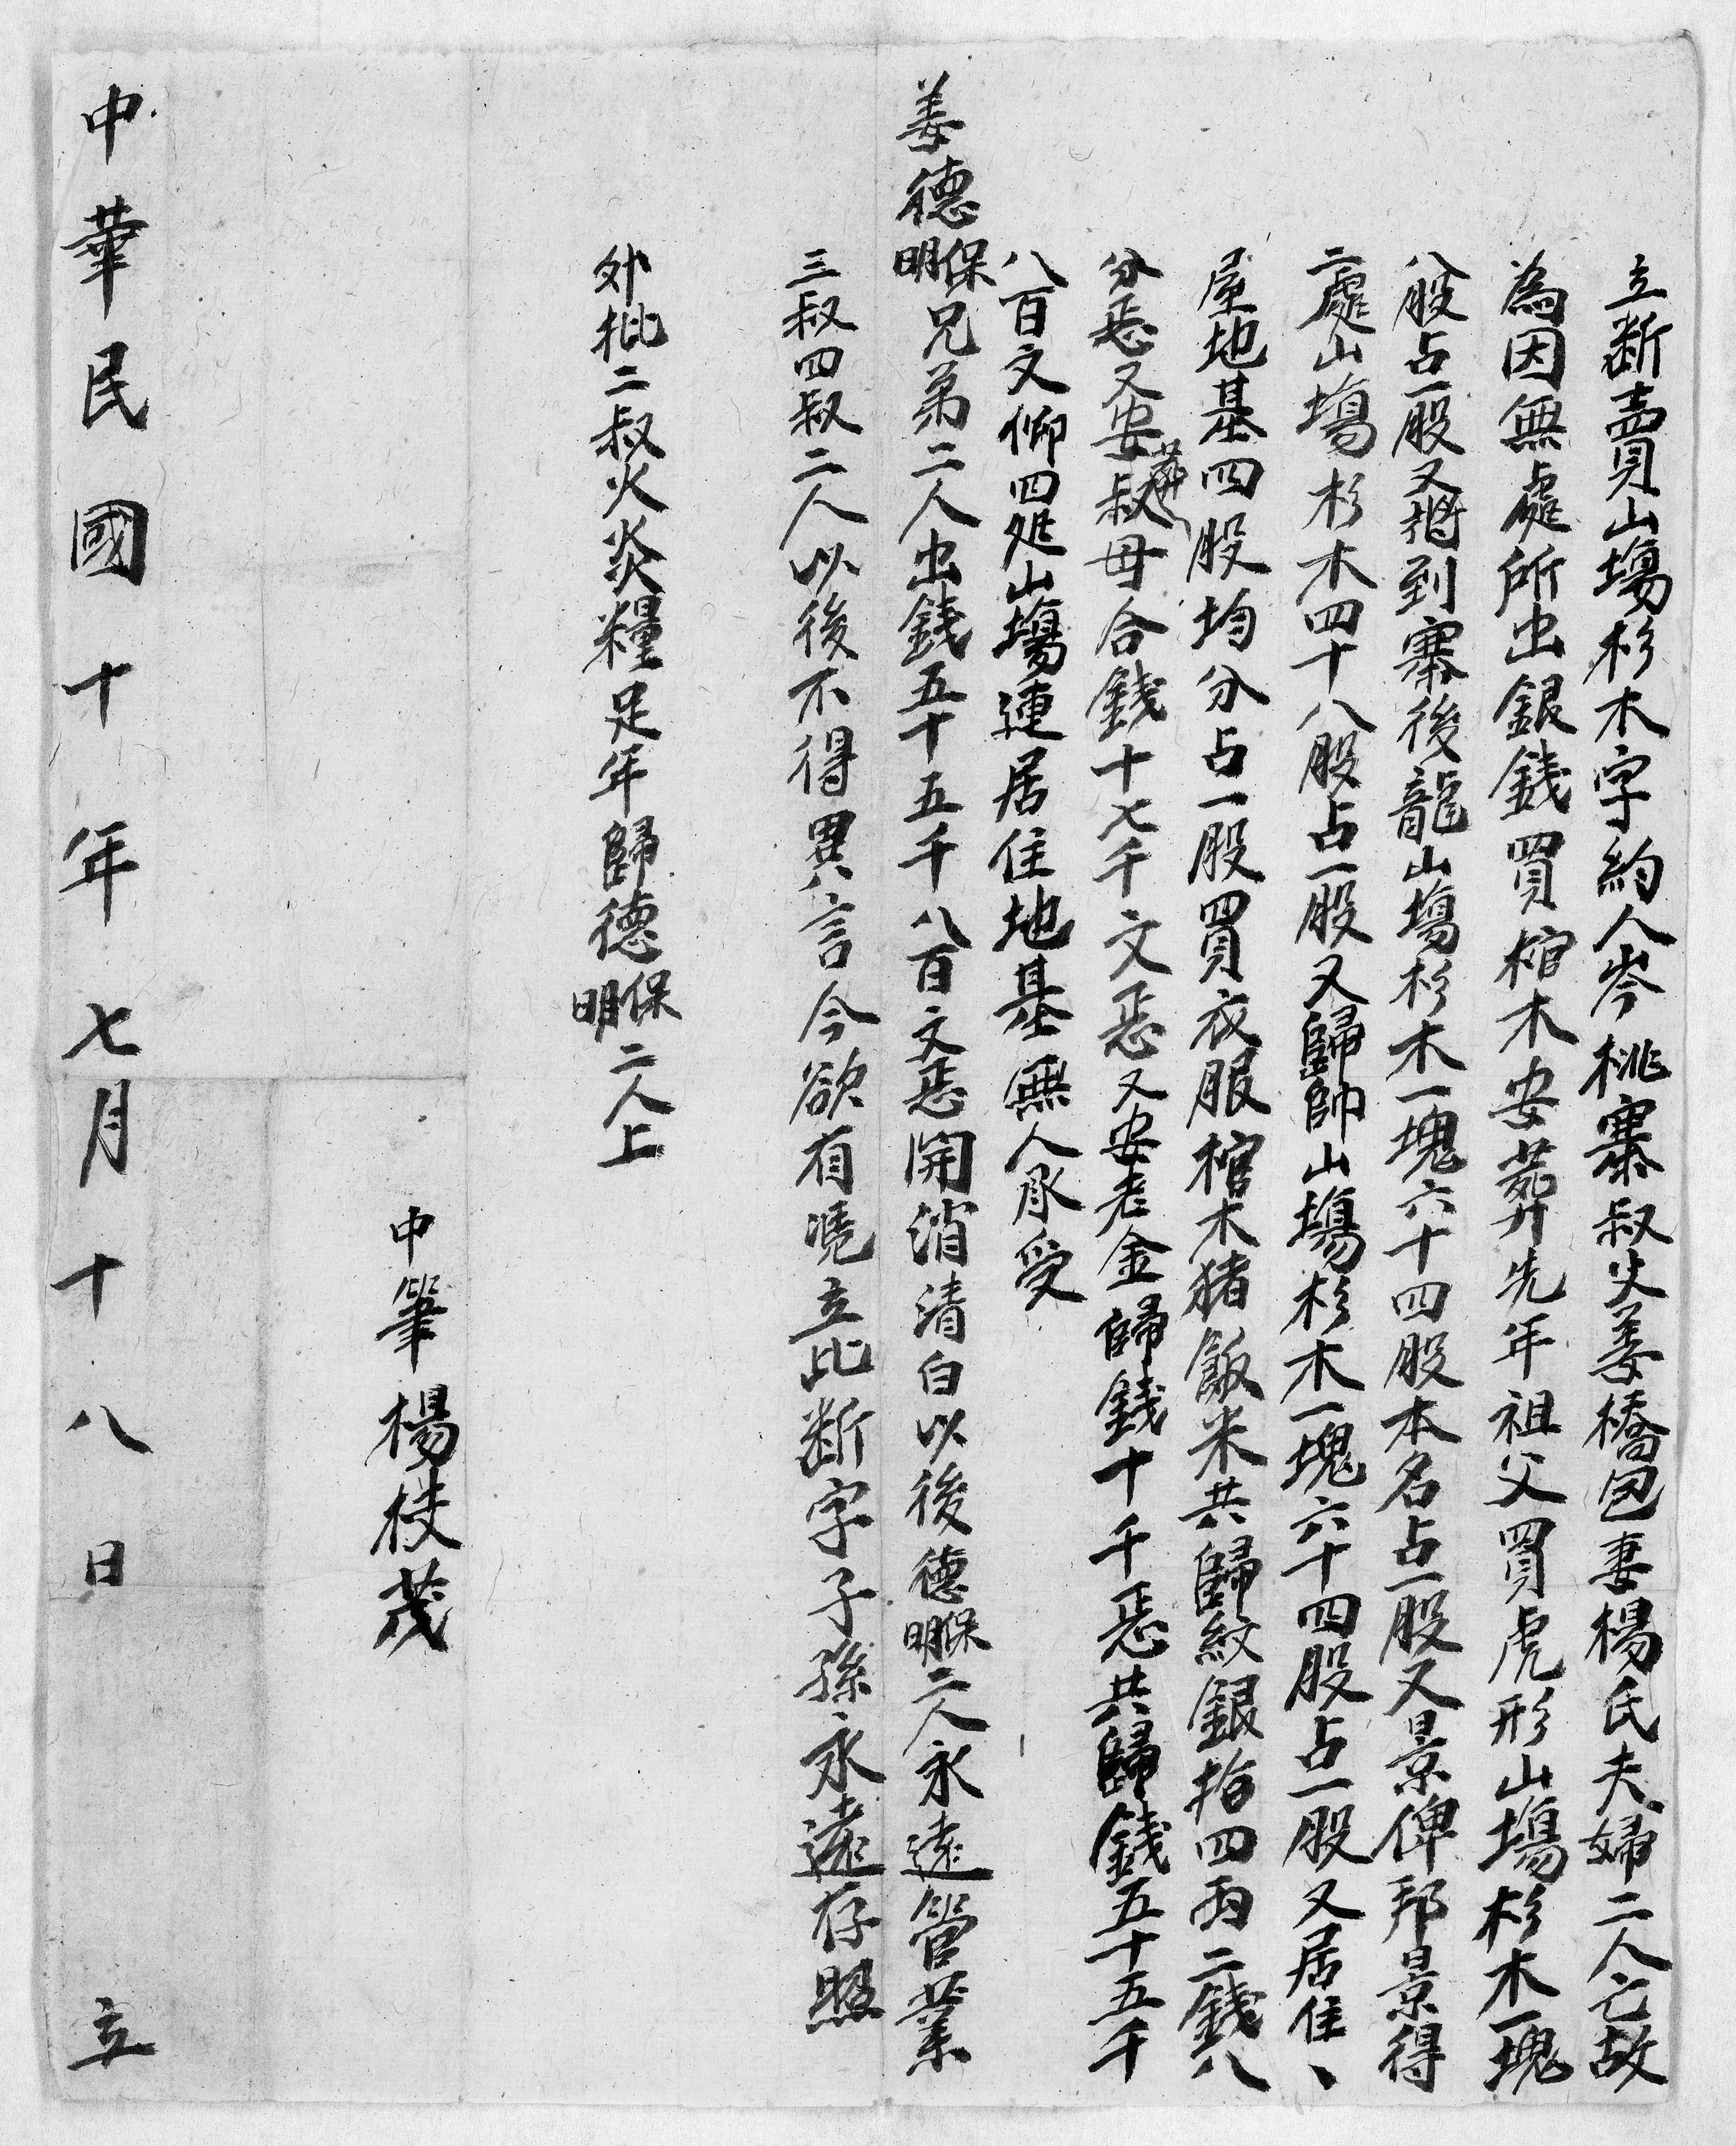 立断賣山塲杉木字約人岑桃寨叔火姜橋包妻楊氏夫婦二人亡故
為因無處所出銀錢買棺木安葬先年祖父買虎形山塲杉木一塊
八股占一股又將到寨後龍山塲杉木一塊六十四股本名占一股又景俾邦景得
二處山塲杉木四十八股占一股又歸帥山塲杉木一塊六十四股占一股又居住、
屋地基四股均分占一股買衣服棺木猪飯米共歸紋銀拾四両二錢八
分㤙又安葬叔母合錢十七千文㤙又安老金歸錢十千㤙共歸錢五十五千
八百文仰四処山塲連居住地基無人承受
姜德明保兄弟二人出錢五十五千八百文㤙開消清白以後德明保二人永遠管業
三叔四叔二人以後不得異言今欲有凴立此断字子孫永遠存照
外批二叔火炎糧足年歸德明保二人上
中筆楊枝茂
中華民國十年七月十八日立